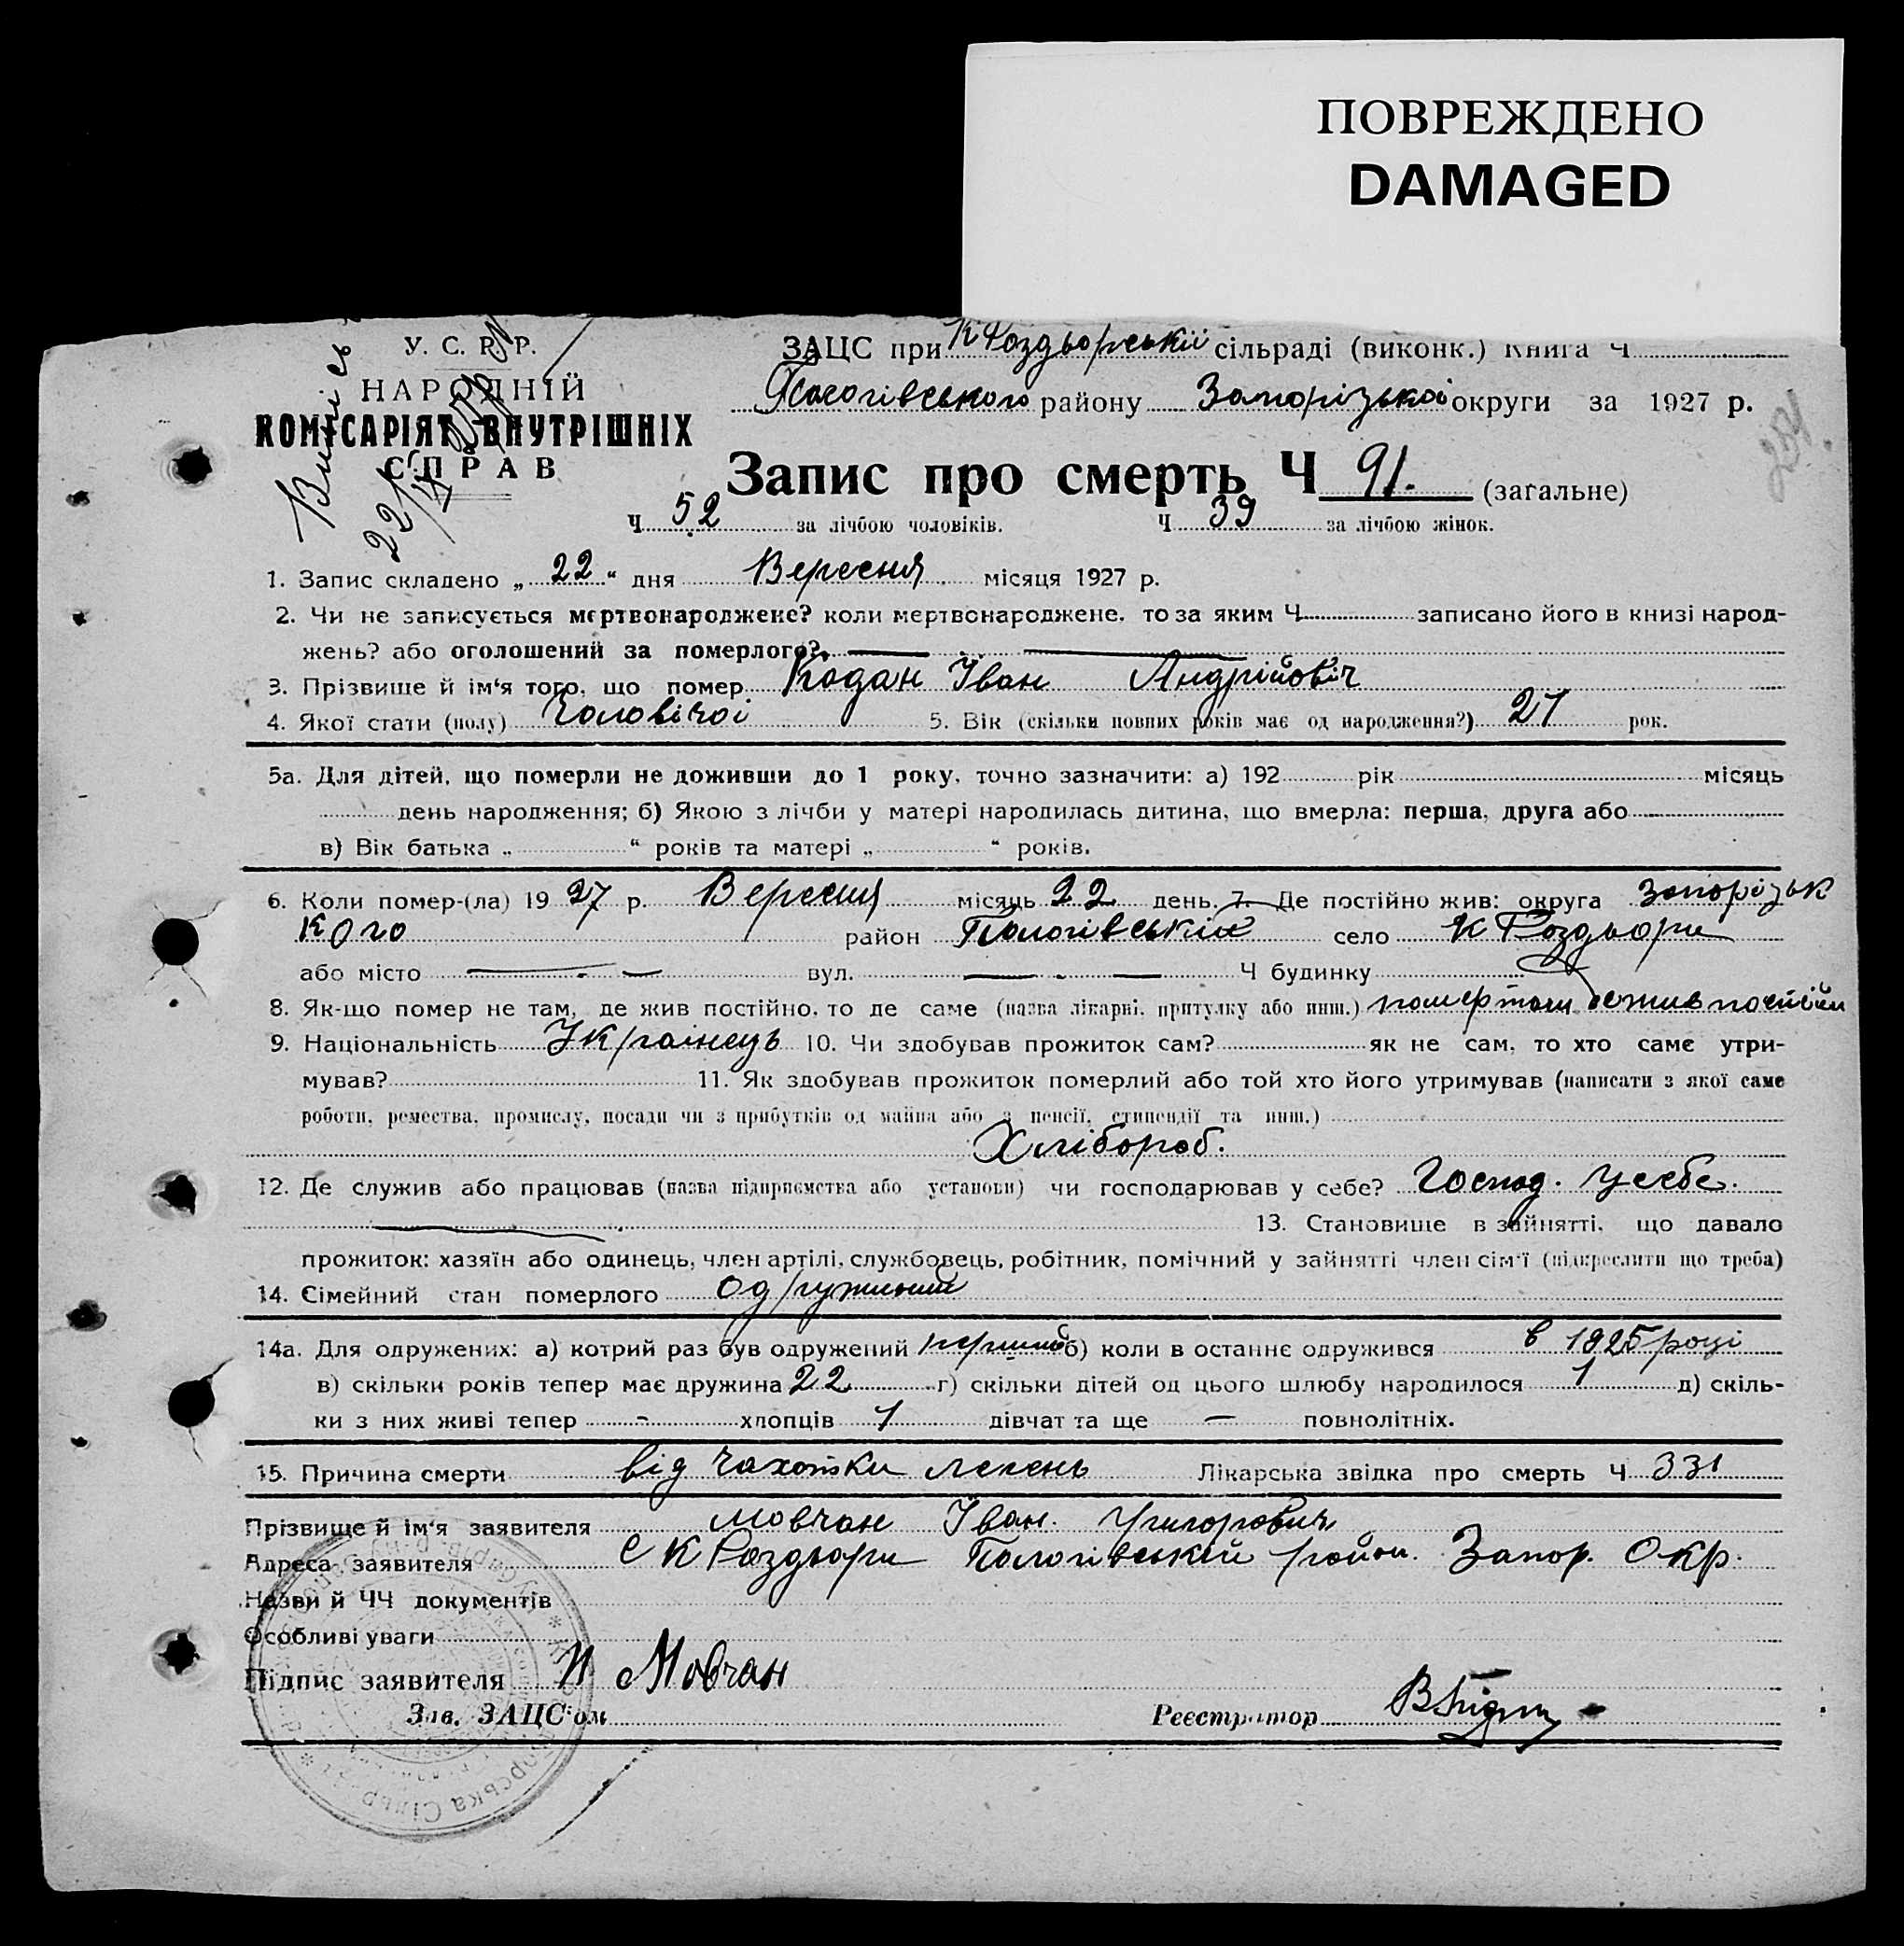 ПОВРЕЖДЕНО
DAMAGED
У. С. Р. Р.
НАРОДНІЙ
КОМІСАРІЯТ ВНУТРІШНІХ
СПРАВ
ЗАЦС при К Роздьорській сільраді (виконк.) Книга Ч
Пологівського району Запорізької округи за 1927 р.
Запис про смерть Ч 91. (загальне)
Ч 52 за лічбою чоловіків. Ч 39 за лічбою жінок.
1. Запис складено „ 22 “ дня Вересня місяця 1927 р.
2. Чи не записується мертвонароджене? коли мертвонароджене, то за яким Ч записано його в книзі народ-
жень? або оголошений за померлого?
3. Прізвище й ім‘я того, що помер Кодан Іван Андрійовіч
4. Якої стати (полу) Чоловічої 5. Вік (скільки повних років має од народження?) 27 рок.
5а. Для дітей, що померли не доживши до 1 року, точно зазначити: а) 192 рік місяць
день народження; б) Якою з лічби у матері народилась дитина, що вмерла: перша, друга або
в) Вік батька „ “ років та матері „ “ років.
6. Коли помер-(ла) 19 27 р. Вересня місяць 22 день. 7. Де постійно жив: округа Запорізьк
кого район Пологівський село К Роздьори
або місто вул. Ч будинку
8. Як-що помер не там, де жив постійно, то де саме (назва лікарні, притулку або инш.) помер там де жив постійн
9. Національність Українець 10. Чи здобував прожиток сам? як не сам, то хто саме утри-
мував? 11. Як здобував прожиток померлий або той хто його утримував (написати з якої саме
роботи, ремества, промислу, посади чи з прибутків од майна або з пенсії, стипендії та инш.)
Хлібороб.
12. Де служив або працював (назва підприємства або установи) чи господарював у себе? Господ. у себе.
13. Становище в зайнятті, що давало
прожиток: хазяїн або одинець, член артілі, службовець, робітник, помічний у зайнятті член сім‘ї (підкреслити що треба)
14. Сімейний стан померлого Одружений
14а. Для одружених: а) котрий раз був одружений перший б) коли в останнє одружився в 1925 році
в) скільки років тепер має дружина 22 г) скільки дітей од цього шлюбу народилося 1 д) скіль-
ки з них живі тепер - хлопців 1 дівчат та ще — повнолітніх.
15. Причина смерти від чахотки легень Лікарська звідка про смерть Ч 331
Прізвище й ім‘я заявителя Мовчан Іван Григорович
Адреса заявителя с К Роздьори Пологівській район. Запор. Окр.
Назви й ЧЧ документів
Особливі уваги
Підпис заявителя И Мовчан
Зав. ЗАЦС‘ом Реєстратор